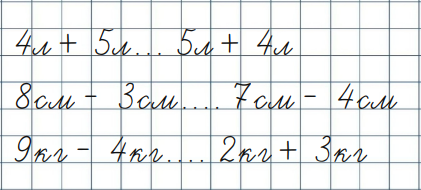 4л + 5л... 5л + 4л
8см - 3см.... 7см - 4см
9кг - 4кг.... 2кг + 3кг